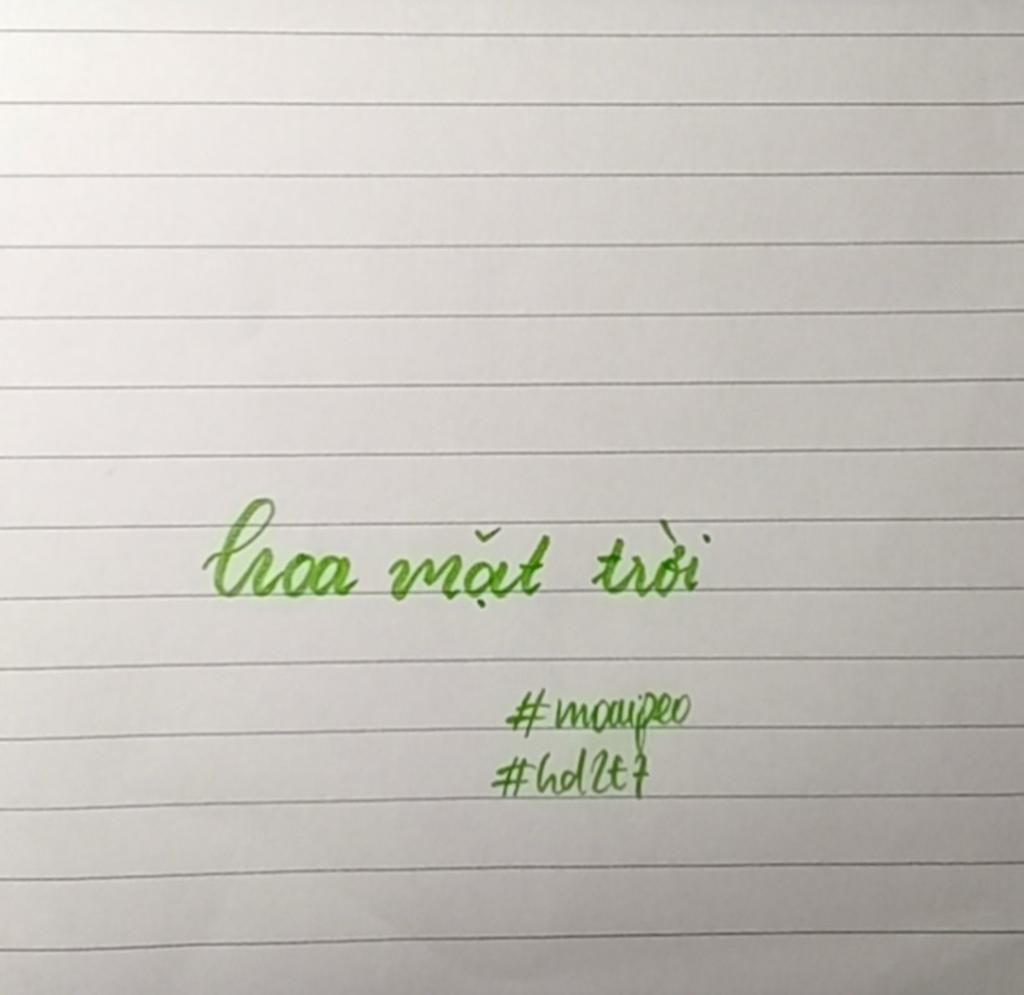 hoa mặt trời
#maujpeo
#hd2t7